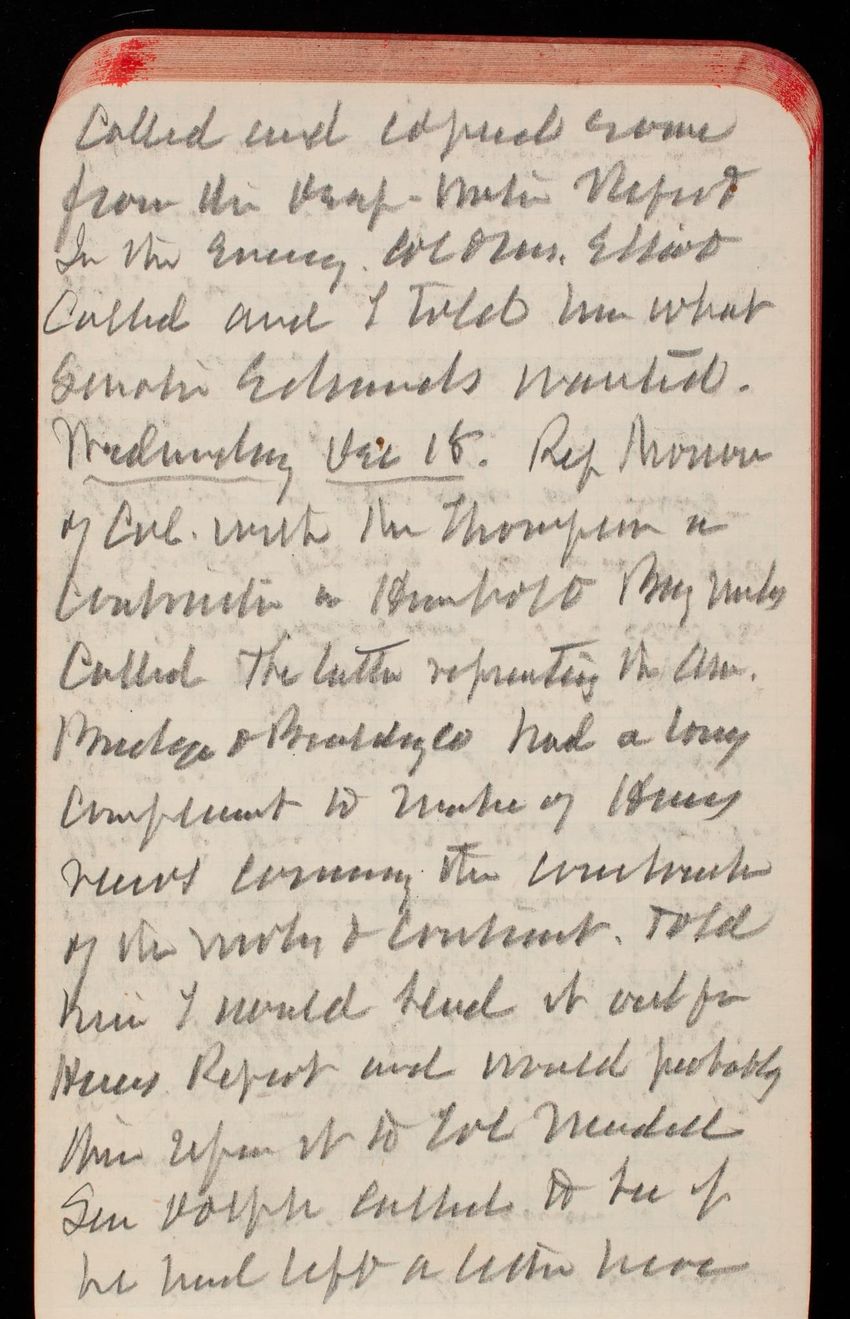 Called and copied some
from the Deep-Water Report
In the Evening. Col & Mrs. Elliot
Called and I told him what
Senator Edmunds wanted.
Wednesday Dec 18. Rep Morrow
of Cal. with Mr Thompson a
Contractor on Humboldt Bay works
Called The latter representing the Am.
Bridge & Building Co had a long
Complaint to make of Heuers
the construction
of the works & Contract. Told
him I would send it out for
Heuers Report and would probably
then refer it to Col Mendell
Sen Dolph called to see if
he had left a letter here